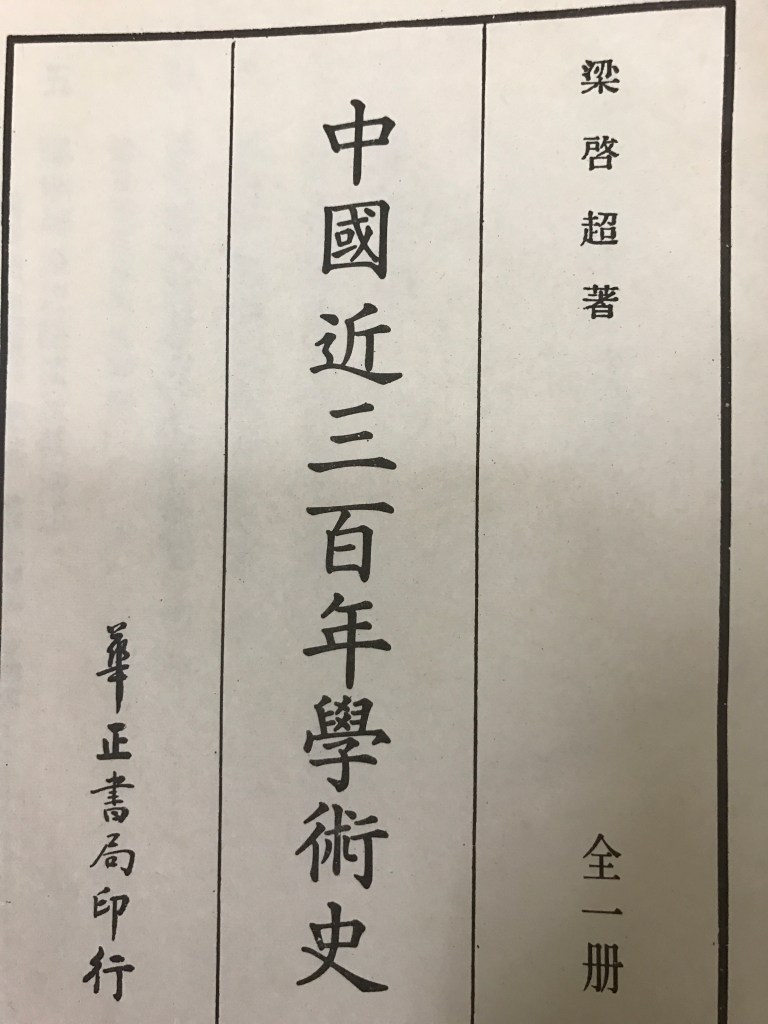 梁啓超著
全一册
中國近三百年學術史
華正書局印行